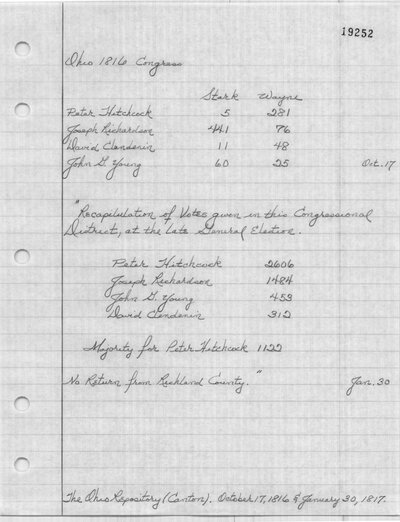 19252
Ohio 1816 Congress
Stark Wayne
Peter Hitchcock 5 281
Joseph Richardson 441 76
David Clendenin 11 48
John G. Young 60 25 Oct. 17
"Recapitulation of Votes given in this Congressional
District, at the late General Election.
Peter Hitchcock 2606
Joseph Richardson 1484
John G. Young 453
David Clendenin 312
Majority for Peter Hitchcock 1122
No Return from Richland County." Jan. 30
The Ohio Repository (Canton). October 17, 1816 & January 30, 1817.